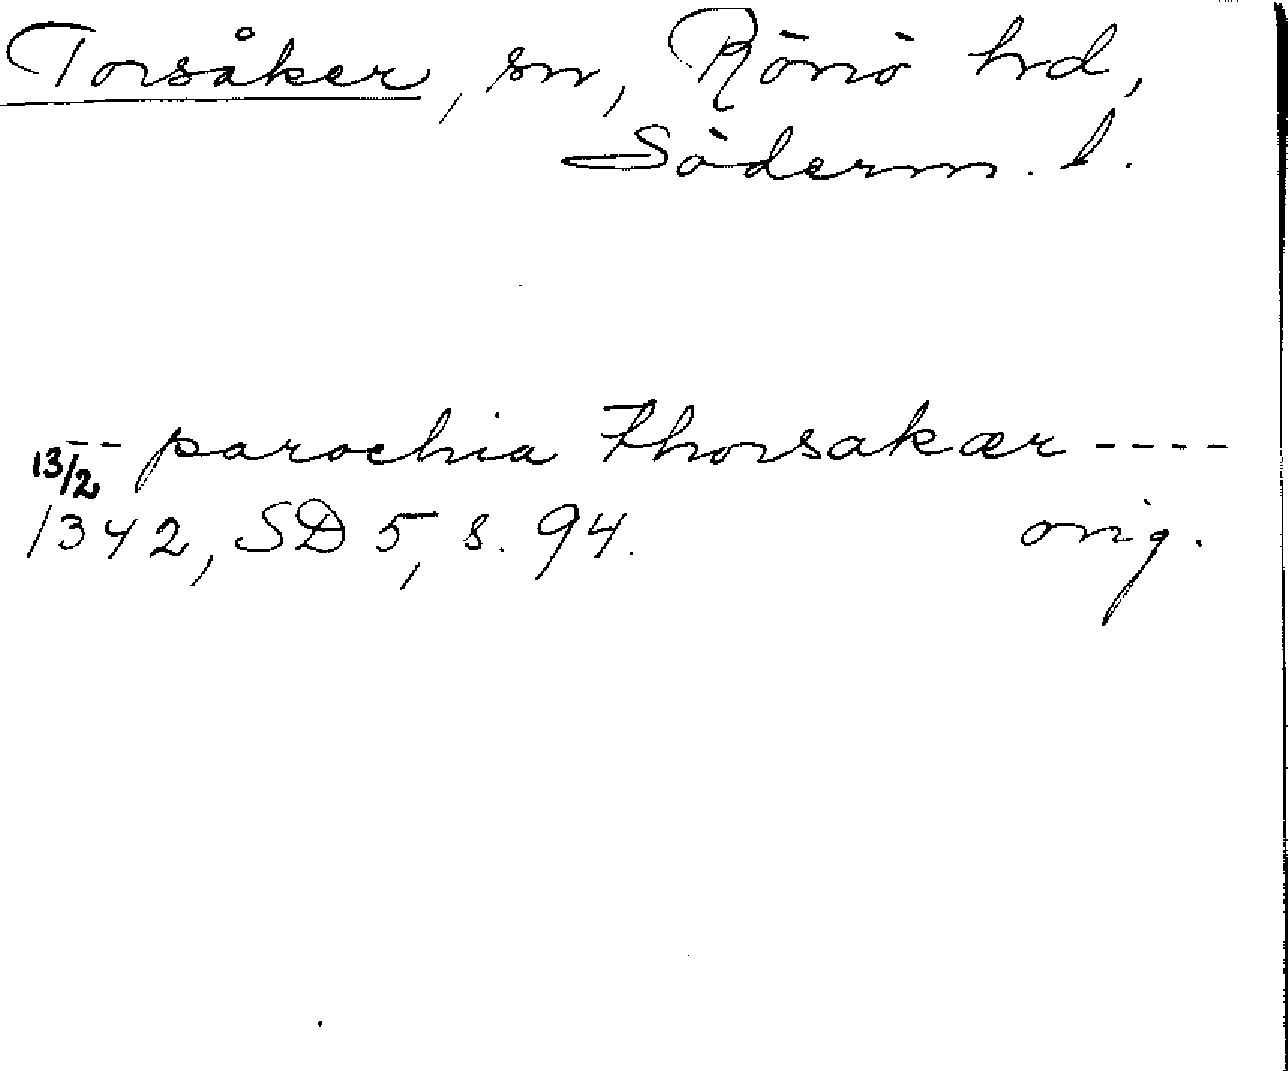 Torsåker, sn, Rönö hrd,
Söderm. l.
--- parochia Thorsakær ----
13/2 1342, SD 5, s. 94. orig.